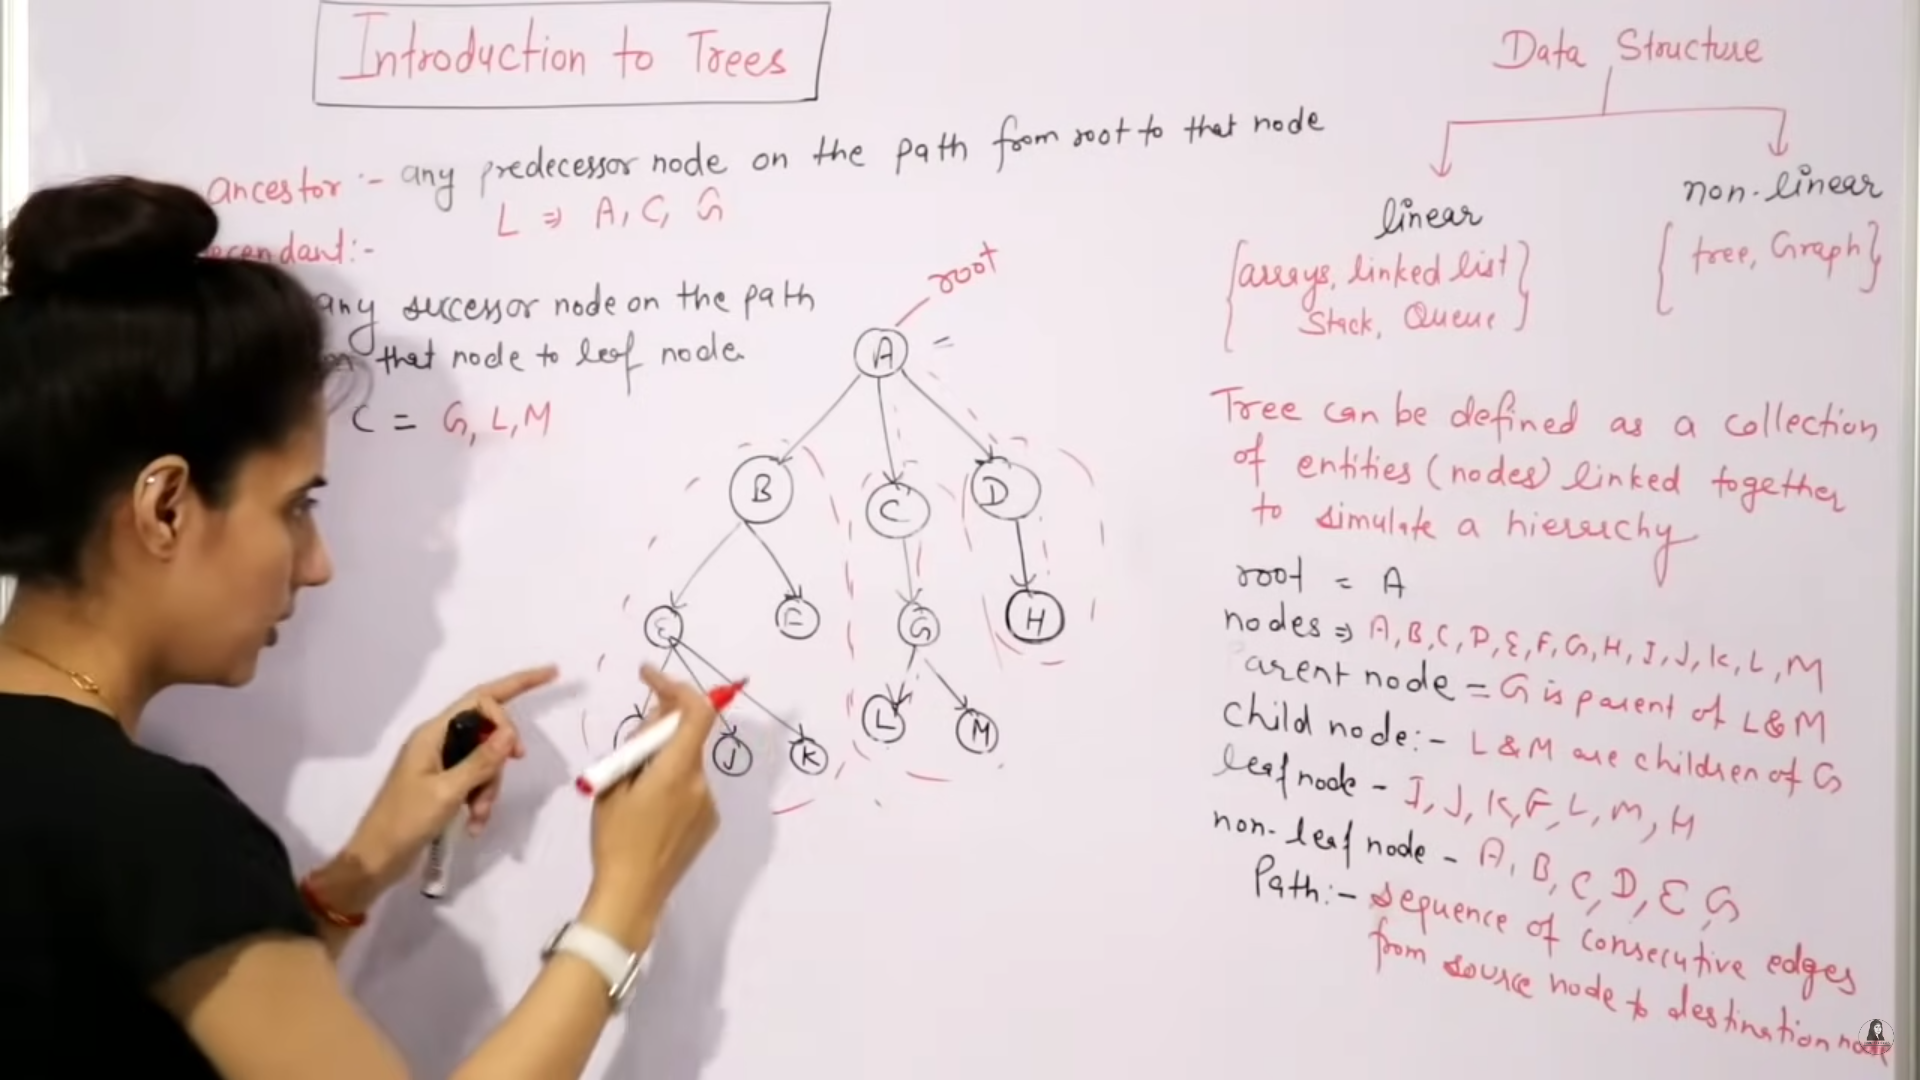 Introduction to Trees
ancestor :- any predecessor node on the path from root to that node
L ⇒ A, C, G
cendant:-
any successor node on the path
that node to leaf node
C = G, L, M
root
A
B
C
D
E
F
G
H
J
K
L
M
Data Structure
linear
non-linear
{arrays, linked list
Stack, Queue}
{tree, Graph}
Tree can be defined as a collection
of entities (nodes) linked together
to simulate a hierarchy
root = A
nodes ⇒ A, B, C, D, E, F, G, H, I, J, K, L, M
arent node = G is parent of L & M
child node:- L & M are children of G
leaf node - I, J, K, F, L, M, H
non-leaf node - A, B, C, D, E, G
Path:- sequence of consecutive edges
from source node to destination node